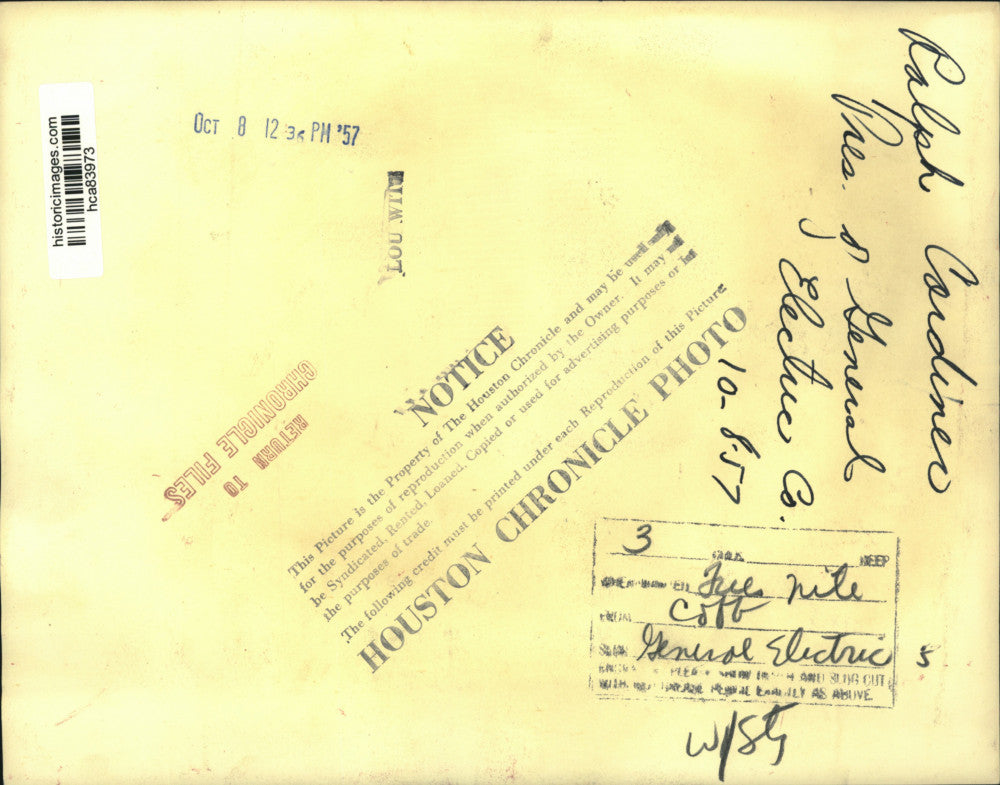 historicimages.com
hca83973
OCT 8 12 36 PM '57
LOU WITT
Ralph Cordiner
Pres. of General
Electric Co.
10-8-57
NOTICE
This Picture is the Property of The Houston Chronicle and may be used
for the purposes of reproduction when authorized by the Owner. It may
be Syndicated, Rented, Loaned, Copied or used for advertising purposes or
the purposes of trade.
The following credit must be printed under each Reproduction of this Picture
HOUSTON CHRONICLE PHOTO
RETURN
TO
CHRONICLE FILES
3 DEEP
Tues Nite
Cobb
General Electric
AND SLUG CUT
AS ABOVE.
5
W/Sty